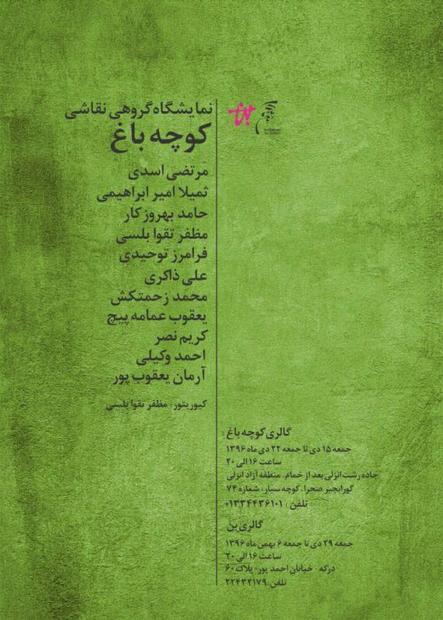 نمایشگاه گروهی نقاشی
کوچه باغ
مرتضی اسدی
ثمیلا امیر ابراهیمی
حامد بهروزکار
مظفر تقوا بلسی
فرامرز توحیدی
علی ذاکری
محمد زحمتکش
یعقوب عمامه پیچ
کریم نصر
احمد وکیلی
آرمان یعقوب پور
کیوریتور: مظفر تقوا بلسی
گالری کوچه باغ:
جمعه ۱۵ دی تا جمعه ۲۲ دی ماه ۱۳۹۶
ساعت ۱۶ الی ۲۰
جاده رشت انزلی بعد از خمام. منطقه آزاد انزلی
گورابجیر صحرا. کوچه سبیار: شماره ۷۴
تلفن: ۰۱۳۳۴۴۳۶۱۰۱
گالری بن
جمعه ۲۹ دی تا جمعه ۶ بهمن ماه ۱۳۹۶
ساعت ۱۶ الی ۲۰
درکه - خیابان احمد پور- پلاک ۶۰
تلفن: ۲۲۴۳۲۱۷۹